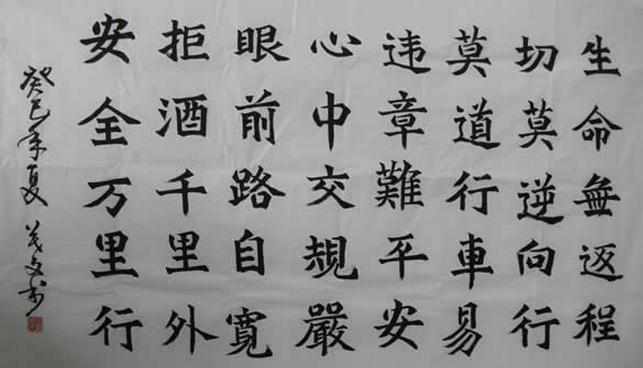 生命無返程
切莫逆向行
莫道行車易
违章難平安
心中交規嚴
眼前路自寬
拒酒千里外
安全万里行
癸巳年夏